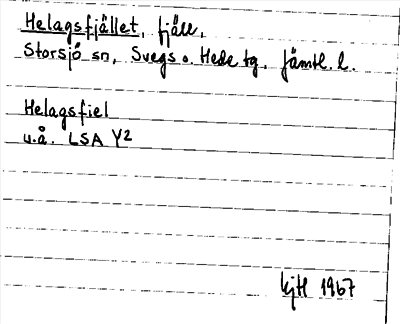 Helagsfjället, fjäll,
Storsjö sn, Svegs o. Hede tg, Jämtl. l.
Helagsfiel
u.å. LSA Y2
1967